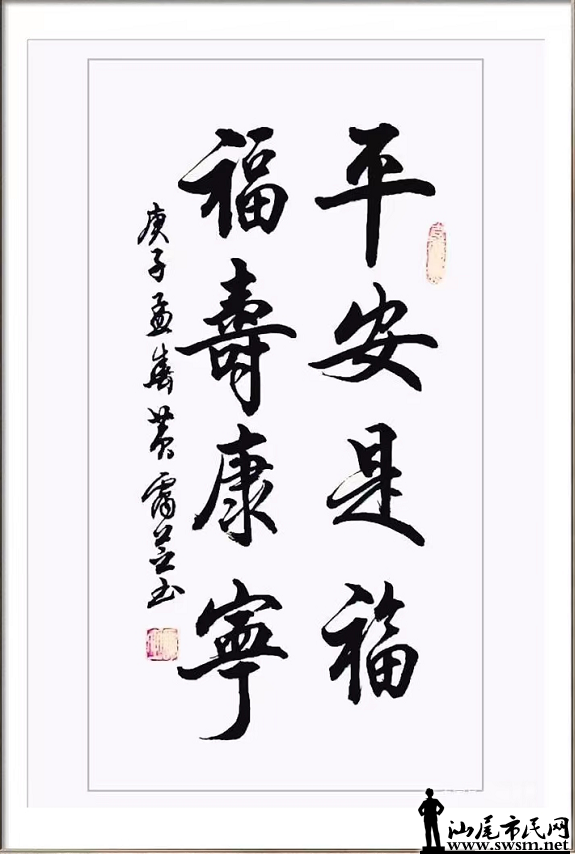 平安是福
福壽康寧
庚子孟春黄霈芸书
汕尾市民网
www.swsm.net